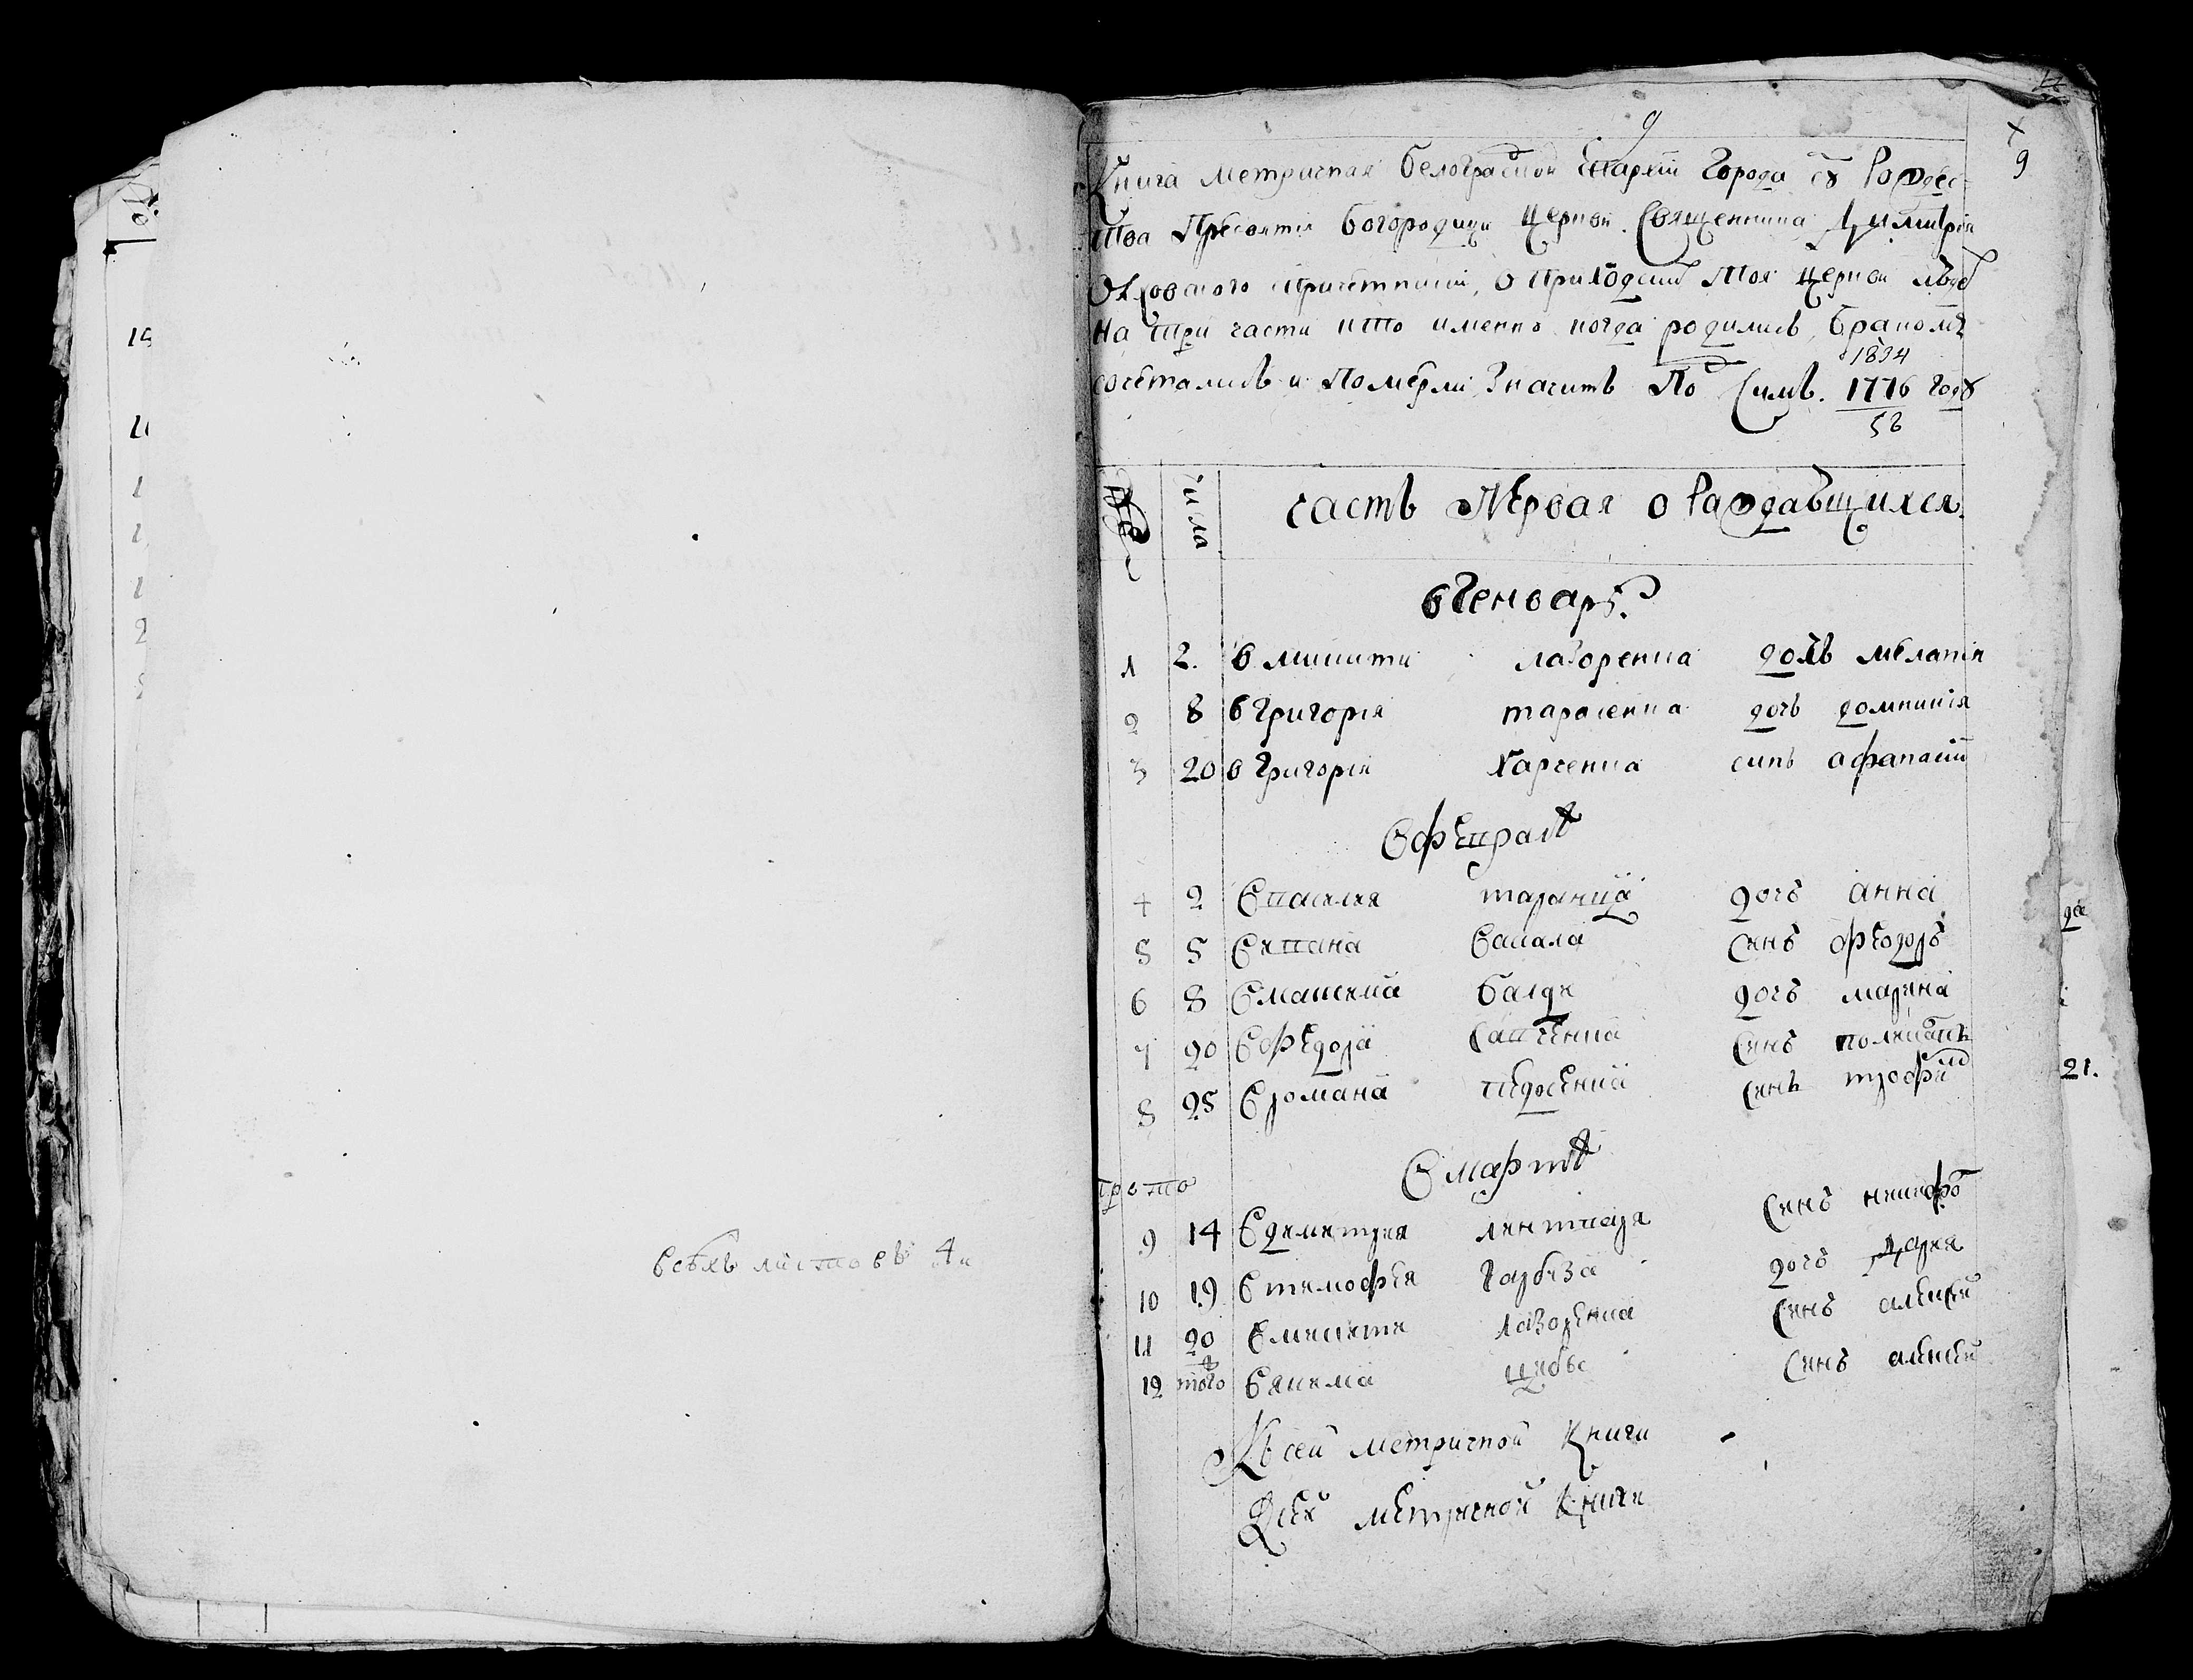 всѣхъ листовъ
9
9
Книга метричная Белоградской Епархїи города Рождес-
тва Пресвятія Богородици церкви Священника Димитрія
приходскихъ тоя церкви
на три части кто именно когда родились, бракомъ
1834
сочетались и померли значитъ По 1776 годѣ
58
числа
часть Первая о Раждавшихся
в Генварѣ
1 2. в Микити лазоренка дочь мелания
2 8 в Григория тарасенка дочь домникия
3 20 в Григория харченка синъ афанасий
в февралѣ
4 2 Василия таранца дочь анна
5 5 Степана сынъ феодоръ
6 8 в Максима балди дочь марина
7 20 в федора савченка сынъ
8 25 в романа федосенка сынъ трофим
в мартѣ
9 14 в димитрия сынъ никифо
10 19 в тимофея гарбуза дочь дария
11 20 в микити лазоренка сынъ алексей
12 того в якима сынъ алексей
Къ сей метричной книги
К сей метричной книги
21.